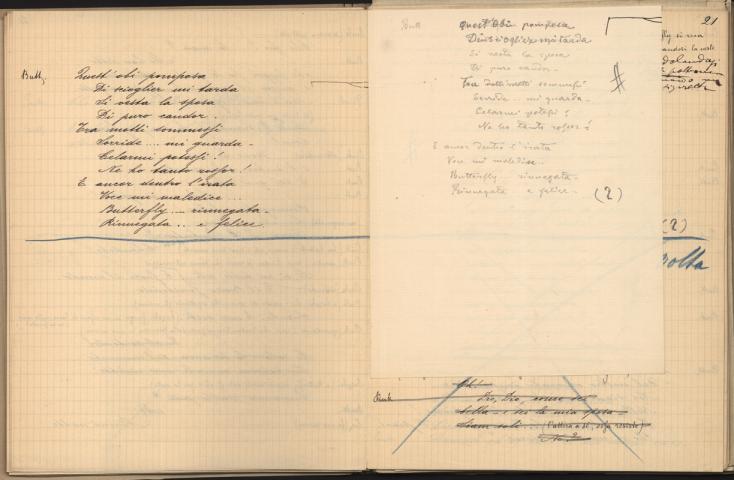 Butty. Quest'obi pomposa
Di scioglier mi tarda
Si vesta la sposa
Di puro candor.
Tra motti sommessi
Sorride .... mi guarda -
Celarmi potessi!
Ne ho tanto rossor!
E ancor dentro l'irata
Voce mi maledice ...
Butterfly ... rinnegata -
Rinnegata .. e felice
21
Butt Quest'obi pomposa
Di scioglier mi tarda
Si vesta la sposa
Di puro candor -
Tra motti sommessi
Sorride ... mi guarda -
Celarmi potessi!
Ne ho tanto rossor!
E ancor dentro l'irata
Voce mi maledice ..
Butterfly ... rinnegata -
Rinnegata e felice - (2)
(2)
Oh!
come sei
bella - e sei la mia sposa -
Siam soli ...
No!